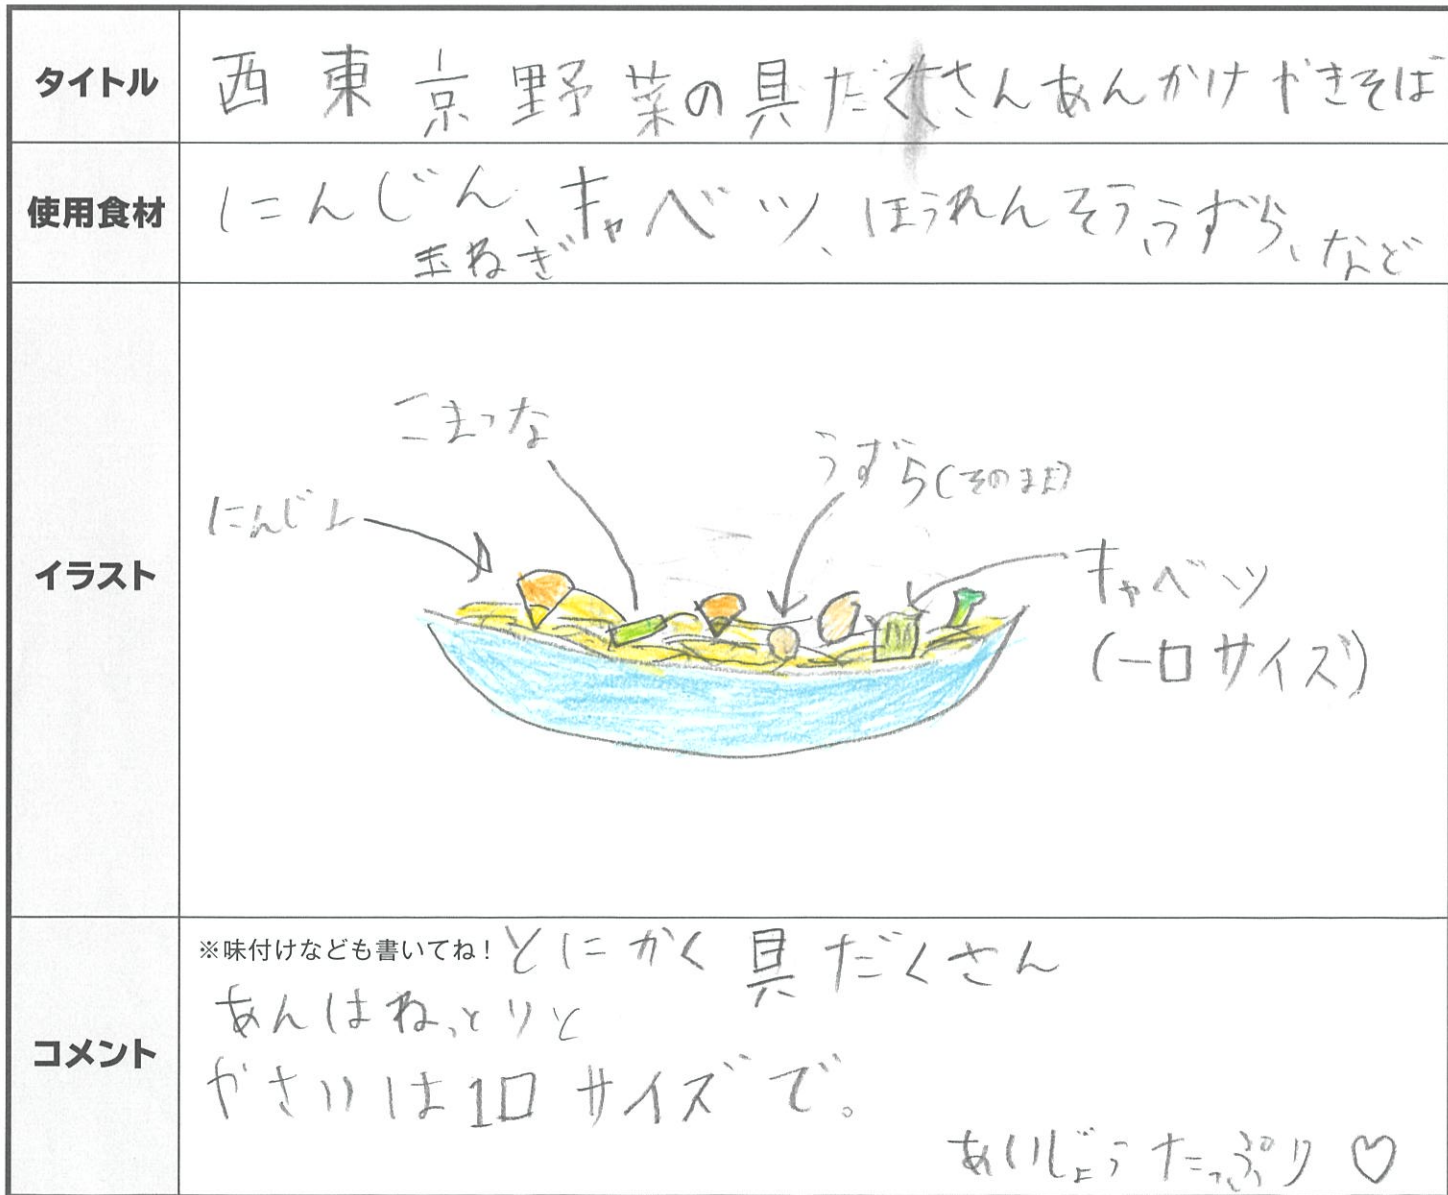 タイトル
西東京野菜の具だくさんあんかけやきそば
使用食材
にんじん、キャベツ、ほうれんそう、うずら、など
玉ねぎ
イラスト
こまつな
うずら(そのまま)
にんじん
キャベツ
(一口サイズ)
コメント
※味付けなども書いてね！とにかく具だくさん
あんはねっとりと
やさいは1口サイズで。
あいじょうたっぷり♡